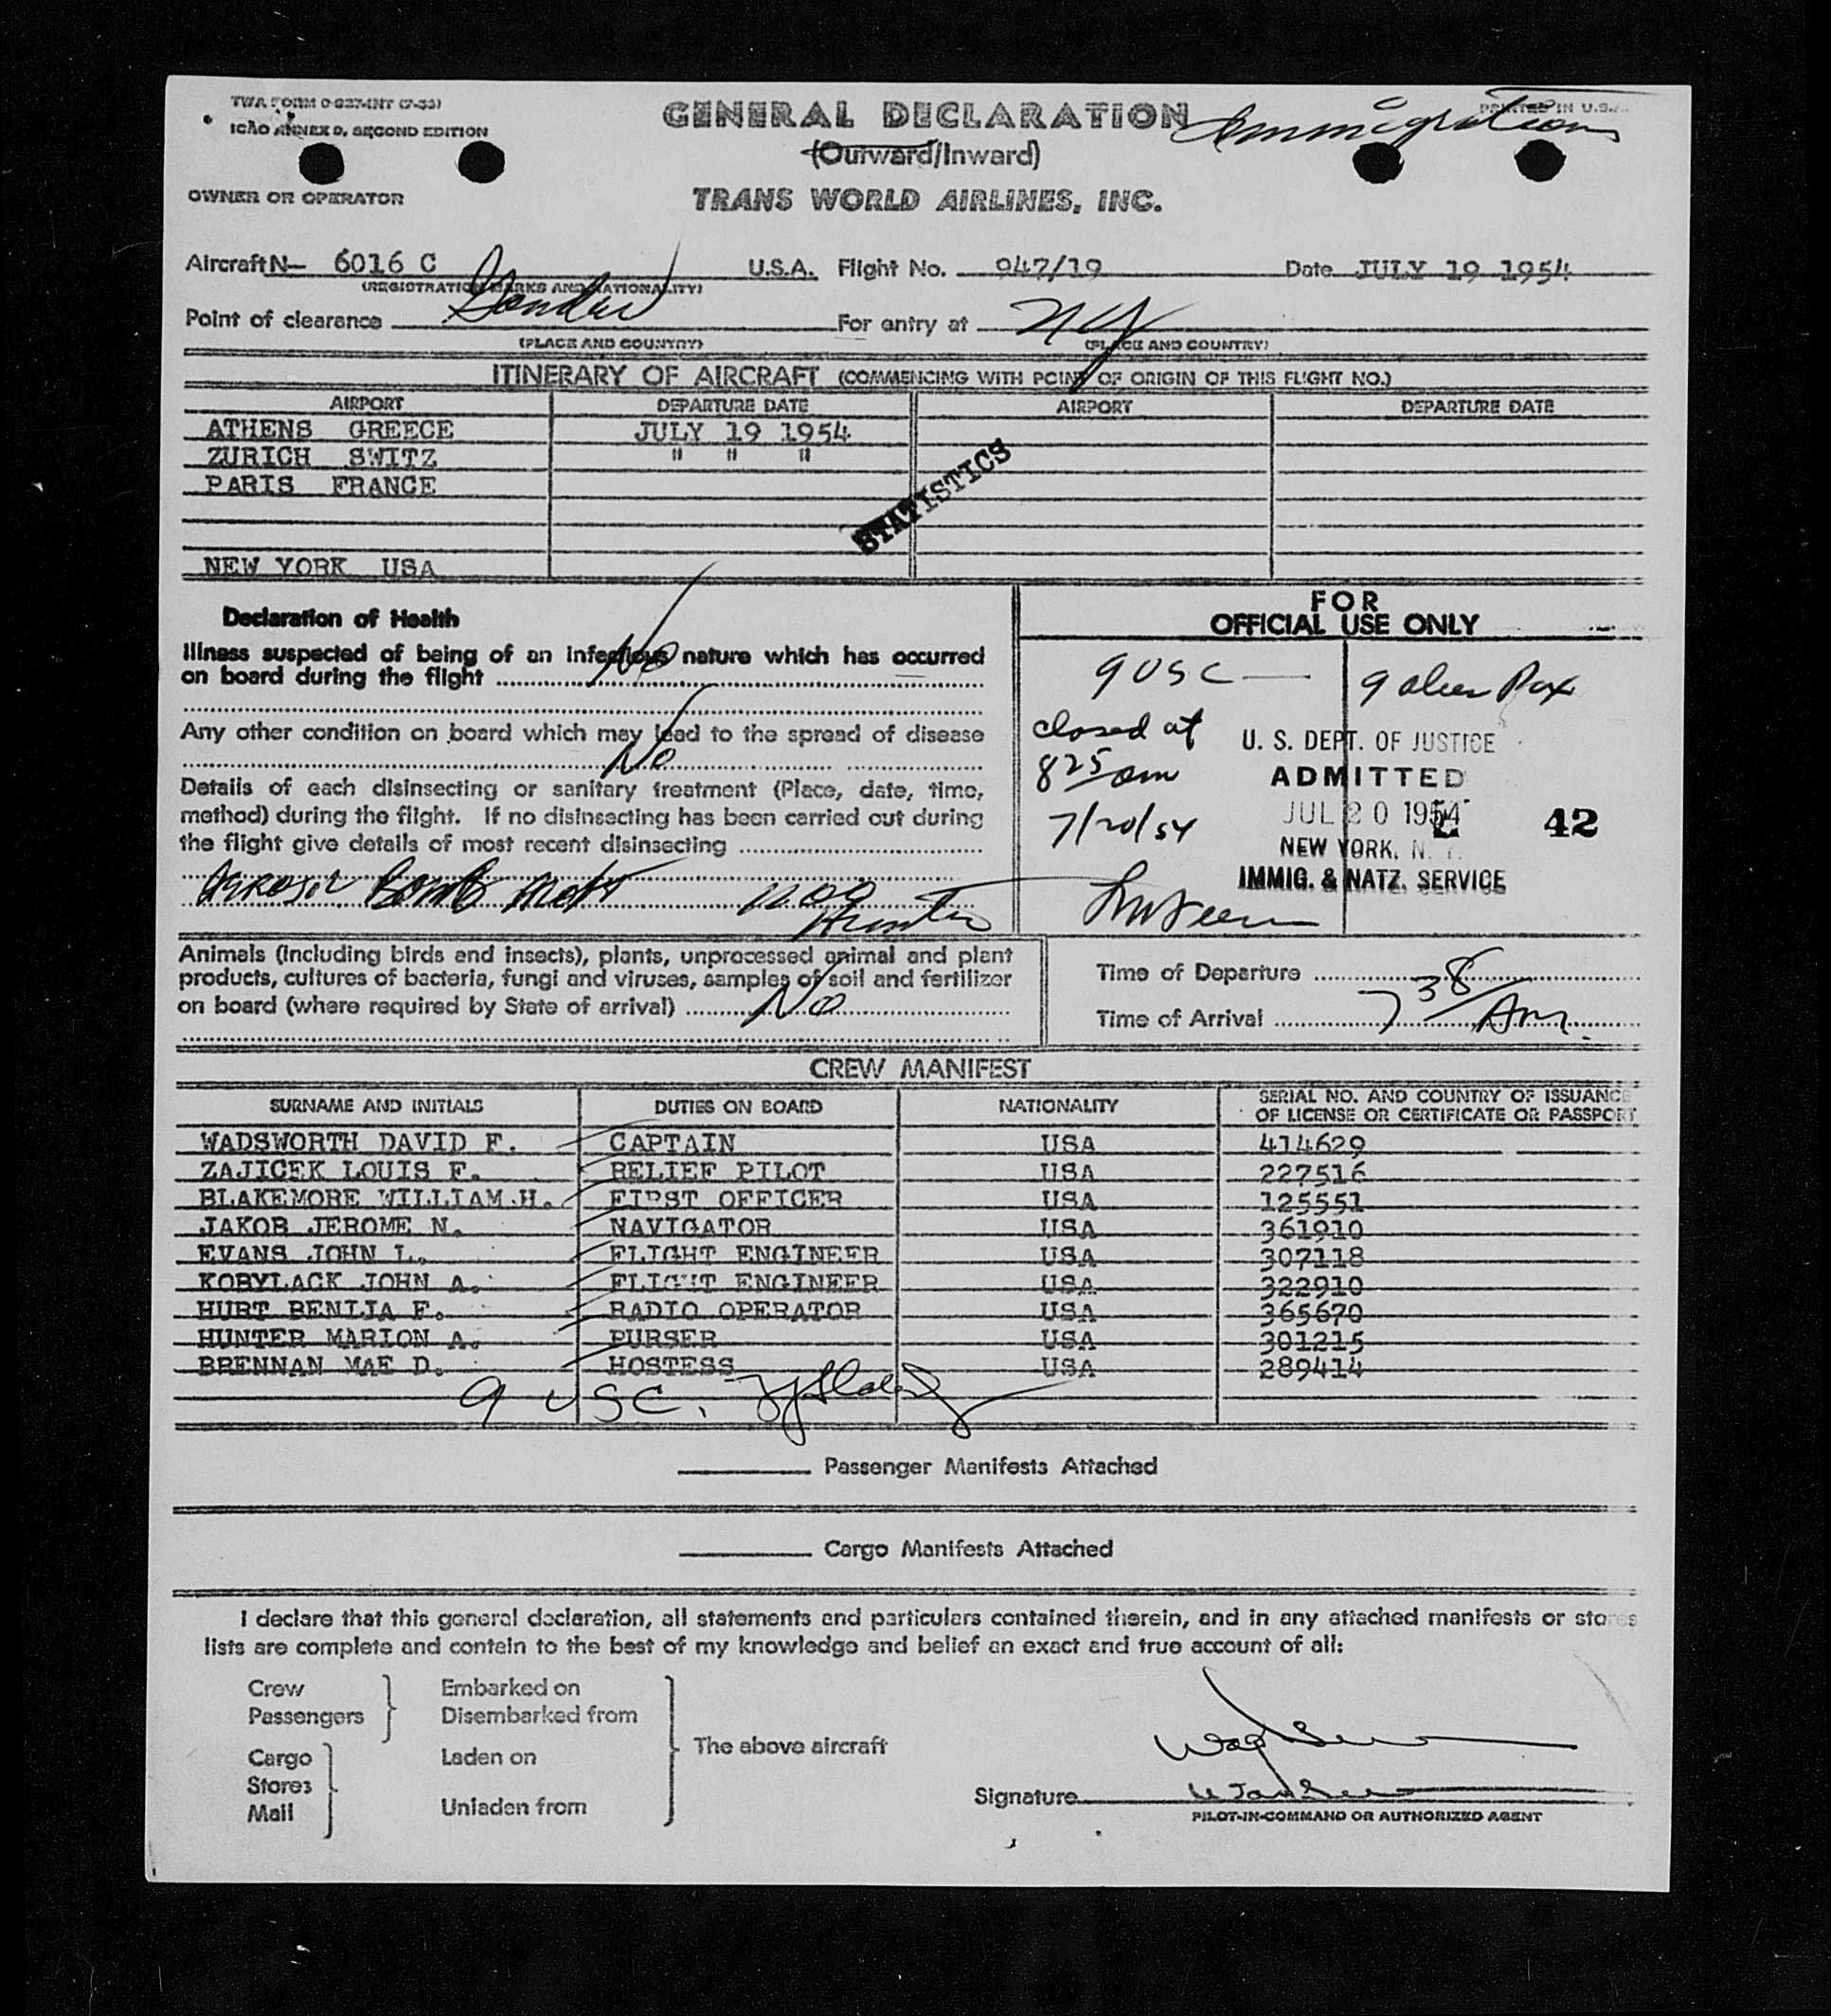 TWA FORM 0-927-INT (7-53)
ICAO ANNEX D, SECOND EDITION
PRINTED IN U.S.A.
GENERAL DECLARATION
Immigration
(Outward/Inward)
OWNER OR OPERATOR
TRANS WORLD AIRLINES, INC.
Aircraft N- 6016 C U.S.A. Flight No. 947/19 Date JULY 19 1954
(REGISTRATION MARKS AND NATIONALITY)
Point of clearance For entry at NY
(PLACE AND COUNTRY) (PLACE AND COUNTRY)
ITINERARY OF AIRCRAFT (COMMENCING WITH POINT OF ORIGIN OF THIS FLIGHT NO.)
AIRPORT DEPARTURE DATE AIRPORT DEPARTURE DATE
ATHENS GREECE JULY 19 1954
ZURICH SWITZ " " "
PARIS FRANCE
STATISTICS
NEW YORK USA
Declaration of Health
Illness suspected of being of an infectious nature which has occurred
on board during the flight No
Any other condition on board which may lead to the spread of disease
No
Details of each disinsecting or sanitary treatment (Place, date, time,
method) during the flight. If no disinsecting has been carried out during
the flight give details of most recent disinsecting
Aerosol Bomb
Hunter
FOR
OFFICIAL USE ONLY
9 USC — 9 alien Pax
closed at
8 25 am
7/20/54
U. S. DEPT. OF JUSTICE
ADMITTED
JUL 20 1954 42
NEW YORK, N. Y.
IMMIG. & NATZ. SERVICE
Animals (including birds and insects), plants, unprocessed animal and plant
products, cultures of bacteria, fungi and viruses, samples of soil and fertilizer
on board (where required by State of arrival) No
Time of Departure
Time of Arrival 7 38 Am.
CREW MANIFEST
SURNAME AND INITIALS DUTIES ON BOARD NATIONALITY SERIAL NO. AND COUNTRY OF ISSUANCE
OF LICENSE OR CERTIFICATE OR PASSPORT
WADSWORTH DAVID F. CAPTAIN USA 414629
ZAJICEK LOUIS F. RELIEF PILOT USA 227516
BLAKEMORE WILLIAM H. FIRST OFFICER USA 125551
JAKOB JEROME N. NAVIGATOR USA 361910
EVANS JOHN L. FLIGHT ENGINEER USA 307118
KOBYLACK JOHN A. FLIGHT ENGINEER USA 322910
HURT BENIJA F. RADIO OPERATOR USA 365670
HUNTER MARION A. PURSER USA 301215
BRENNAN MAE D. HOSTESS USA 289414
9 USC.
Passenger Manifests Attached
Cargo Manifests Attached
I declare that this general declaration, all statements and particulars contained therein, and in any attached manifests or stores
lists are complete and contain to the best of my knowledge and belief an exact and true account of all:
Crew Embarked on
Passengers Disembarked from
The above aircraft
Cargo Laden on
Stores
Mail Unladen from
Signature
PILOT-IN-COMMAND OR AUTHORIZED AGENT